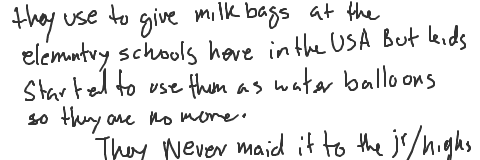 they use to give milk bags at the
elemntry schools here in the USA But kids
Started to use them as water balloons
so they are no more.
They Never maid it to the jr/highs